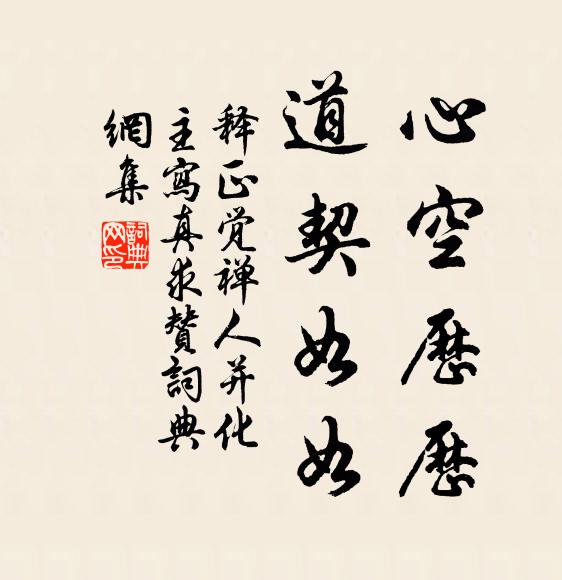 心空歷歷
道契如如
释正觉禅人并化
主寫真求贊詞典
網集
詞典
网印